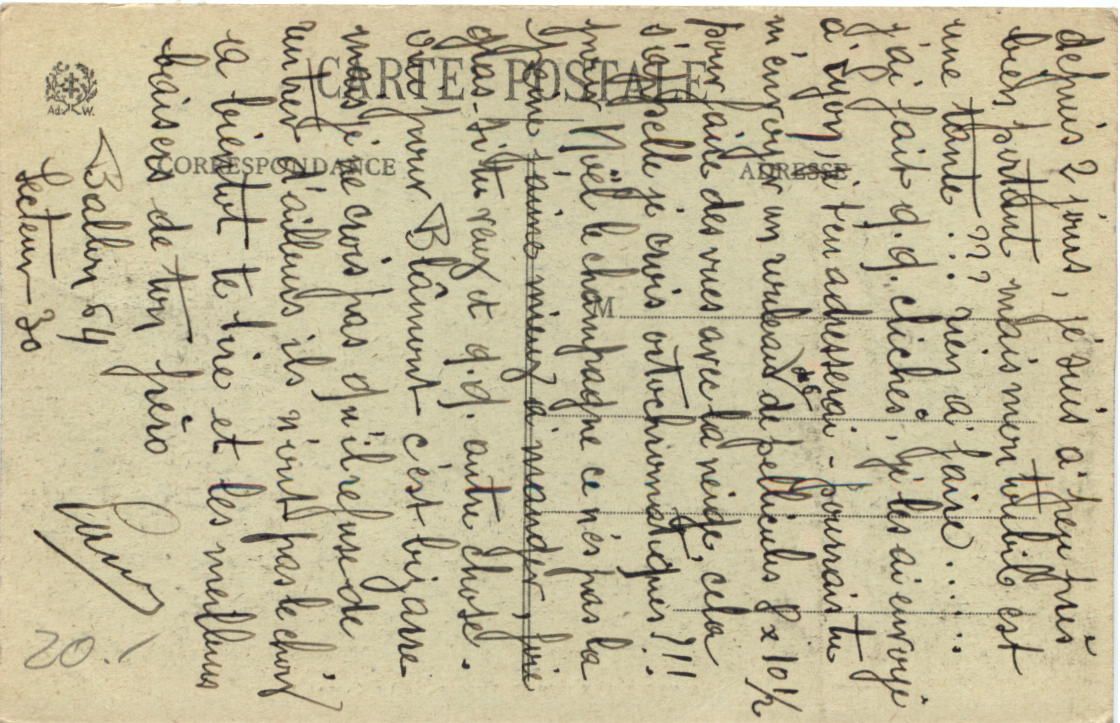 depuis 2 jours, je suis à peu près
bien portant mais mon toubib est
une tante ??? !!! rien à faire.....
j'ai fait q.q. clichés, je les ai envoyé
à Lyon je t'en adresserai - pourrais tu
m'envoyer un rouleau de 6 pellicules 8 x 10 1/2
pour faire des vues avec la neige, cela
s'appelle je crois orthochromatiques ?!!
pour Noël le champagne ce n'es pas la
peine j'aime mieux à mander, foie
gras si tu veux et q.q. autre chose.
oui pour Blâmont c'est bizarre
mais je crois pas qu'il refuse de
rentrer d'ailleurs ils n'ont pas le choix
à bientôt te lire et les meilleurs
baisers de ton frère
Ballon 64
Secteur 30
20.-
CARTE POSTALE
CORRESPONDANCE
ADRESSE
M
Ad. W.